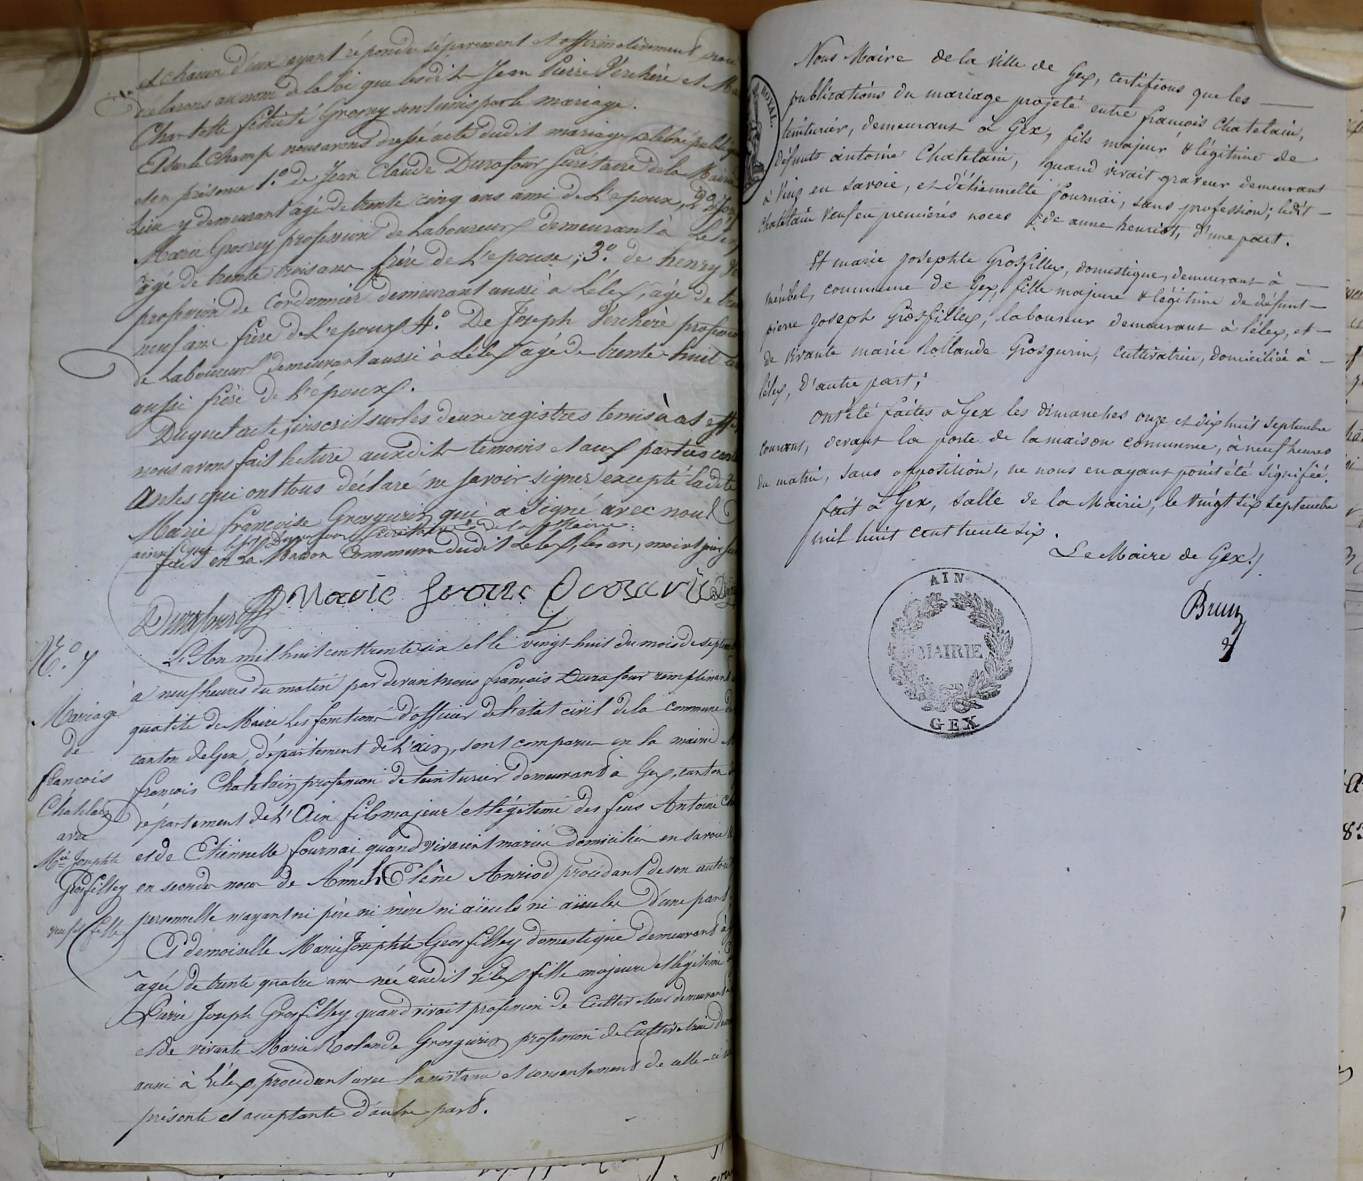 et chacun d'eux ayant répondu séparement et affirmativement nous
declarons au nom de la loi que lesdits Jean Pierre Verchère et Ma
Charlotte félicité Grosrey sont unis par le mariage.
Et sur le champ nous avons dressé acte dudit mariage célébré publiq
et en présence 1.º de Jean Claude Durafour secrétaire de la Mairie
lieu y demeurant agé de trente cinq ans ami de l'epoux, 2.º de
Marie Grosrey profession de Laboureur demeurant à Lelex
âgé de trente trois ans frère de l'epouse; 3.º de henry Ve
profession de Cordonnier demeurant aussi à Lélex, agé de tren
neuf ans frère de l'epoux 4.º De Joseph Verchère profession
de Laboureur demeurant aussi à Lélex agé de trente huit ans
aussi frère de l'epoux.
Duquel acte, inscrit sur les deux registres tenus à cet effet
nous avons fait lecture auxdits temoins et aux parties cont
antes qui ont tous déclaré ne savoir signer excepté ladite
Marie françoise Grosgurin qui a signé avec nous
ainsi que Durafour secrétaire de la Mairie.
fait en la Maison Commune dudit Lelex, les an, mois et jour
Durafour Marie
N.º 7
Mariage
de
françois
Chatelain
avec
M.ie Josephte
Grosfilley
L'An mil huit cent trente six et le vingt-huit du mois de septem
à neuf heures du matin par devant nous françois Durafour remplissant
qualité de Maire les fonctions d'officier de l'état civil de la commune de
canton de Gex, département de l'ain, sont comparu en la mairie
françois Chatelain profession de teinturier demeurant à Gex, canton
département de l'Ain fils majeur et légitime des feus Antoine Cha
et de Etiennette fournai quand vivaient mariés domiciliés en savoie
en seconde noce de Anne hélène Anriod procédant de son autorité
personnelle n'ayant ni père ni mère ni aïeuls ni aïeules d'une part
Et demoiselle Marie Josephte Grosfilley domestique demeurant à
âgée de trente quatre ans née audit Lélex fille majeure et légitime
Pierre Joseph Grosfilley quand vivait profession de Cultivateur demeurant
et de vivante Marie Rolande Grosgurin profession de Cultivatrice
aussi à Lélex, procédant avec l'assistance et consentement de celle-ci
présente et acceptante d'autre part.
ROYAL
Nous Maire de la ville de Gex, certifions que les
publications du mariage projeté entre françois Chatelain,
teinturier, demeurant à Gex, fils majeur & légitime de
défunts antoine Chatelain, quand vivait graveur demeurant
en Savoie, et d'étiennette fournai, sans profession; ledit
Chatelain veuf en premières noces de anne henriot, d'une part.
Et marie josephte Grosfilley, domestique, demeurant à
commune de Gex, fille majeure & légitime de défunt
pierre joseph Grosfilley, laboureur demeurant à lélex, et
de vivante marie Rollande Grosgurin, cultivatrice, domiciliée à
lélex, d'autre part;
Ont été faites à Gex les dimanches onze et dix huit septembre
courant, devant la porte de la maison commune, à neuf heures
du matin, sans opposition, ne nous en ayant point été signifié.
fait à Gex, Salle de la Mairie, le vingt six septembre
mil huit cent trente six.
Le Maire de Gex.
AIN
MAIRIE
GEX